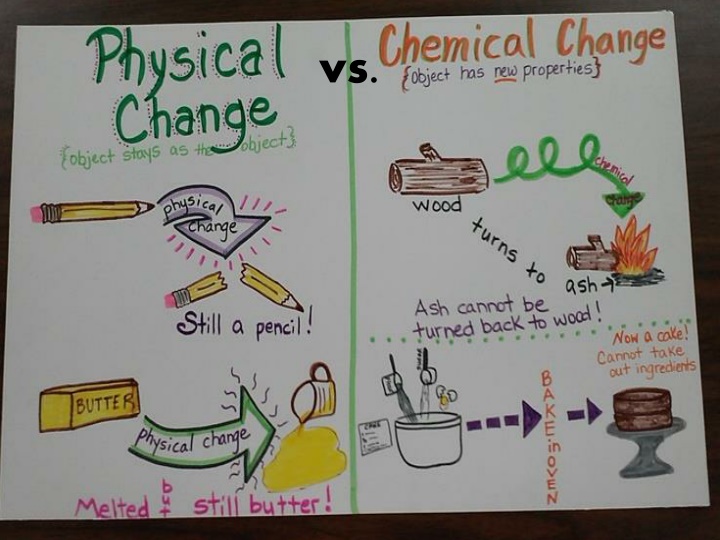 Physical
Change
{object stays as the object}
physical
change
Still a pencil!
BUTTER
physical change
Melted but still butter!
vs.
Chemical Change
{object has new properties}
wood
chemical
change
turns to
ash
Ash cannot be
turned back to wood!
Now a cake!
Cannot take
out ingredients
CAKE
BAKE in OVEN